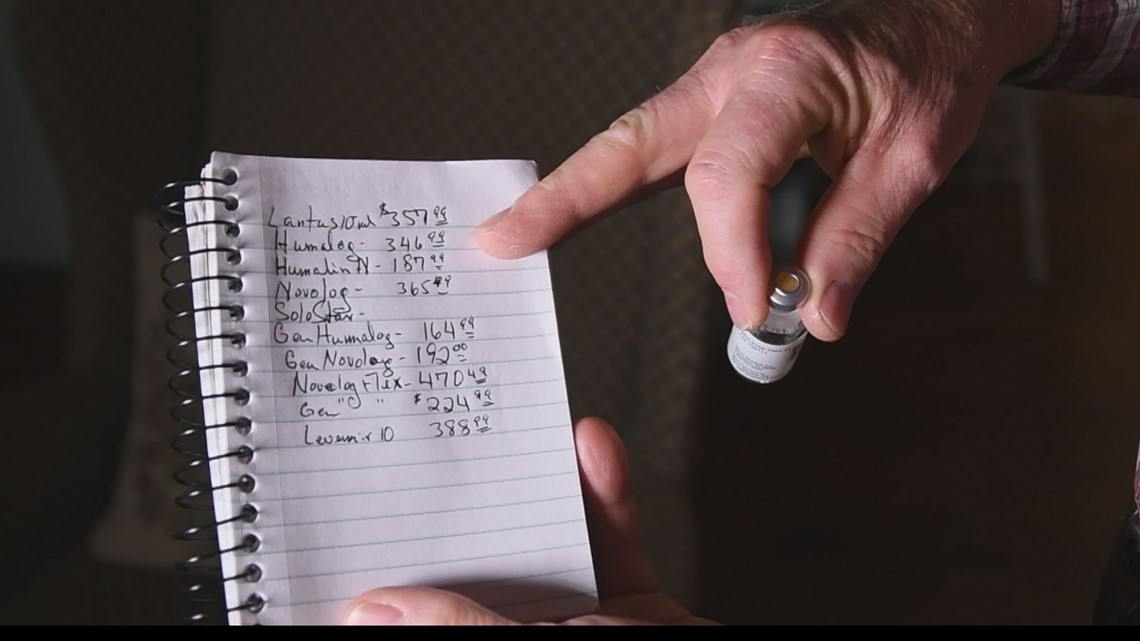 Lantus 10ml $357.99
Humalog - 346.99
Humalin N - 187.99
Novolog - 365.49
SoloStar -
Gen Humalog - 164.99
Gen Novolog - 192.00
Novolog Flex - 470.49
Gen " " $224.99
Levemir 10 388.99